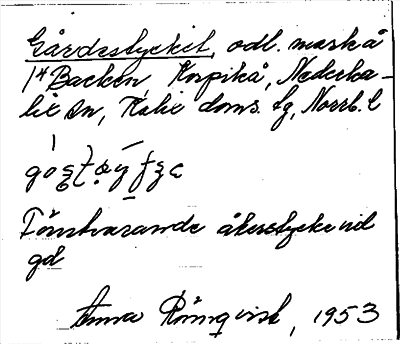 Gårdsstycket, odl. mark å
14 Backen, Korpikå, Nederka-
lix sn, Kalix doms. tg, Norrb. l
Försvarande åkerstycke vid
gd
Anna Rönnqvist, 1953